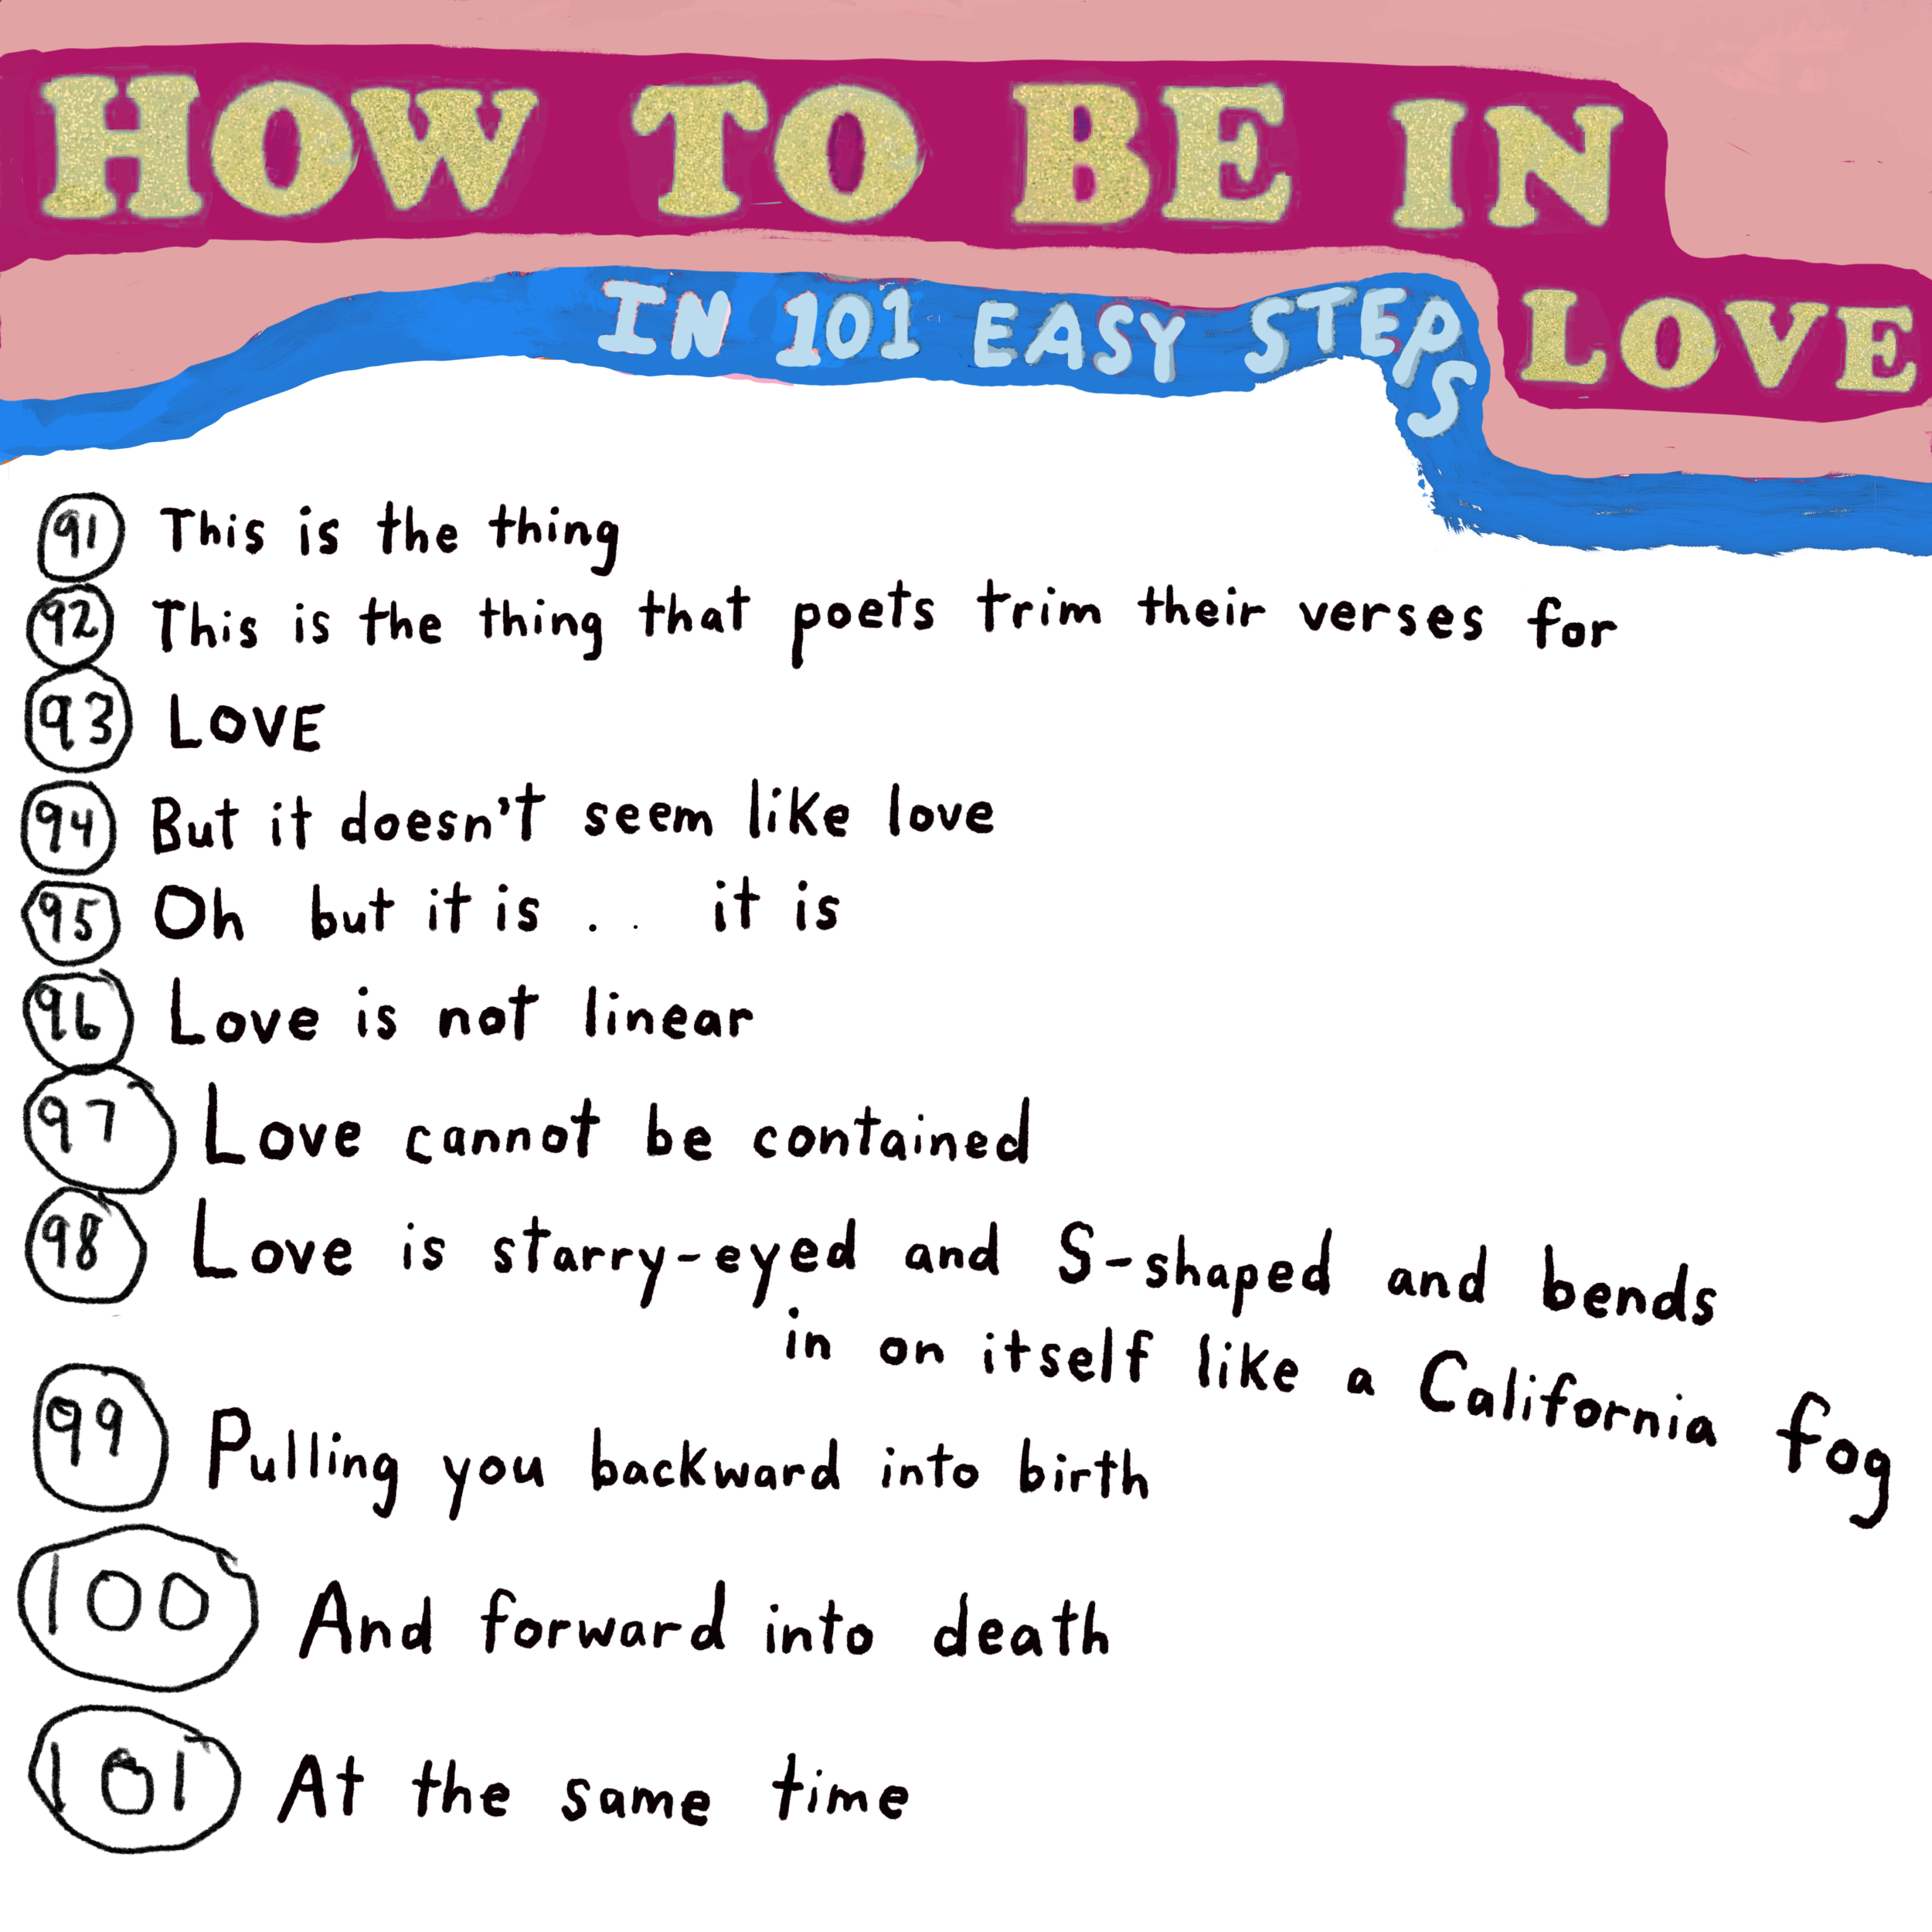 HOW TO BE IN
LOVE
IN 101 EASY STEPS
91 This is the thing
92 This is the thing that poets trim their verses for
93 LOVE
94 But it doesn't seem like love
95 Oh but it is . . it is
96 Love is not linear
97 Love cannot be contained
98 Love is starry-eyed and S-shaped and bends
in on itself like a California fog
99 Pulling you backward into birth
100 And forward into death
101 At the same time